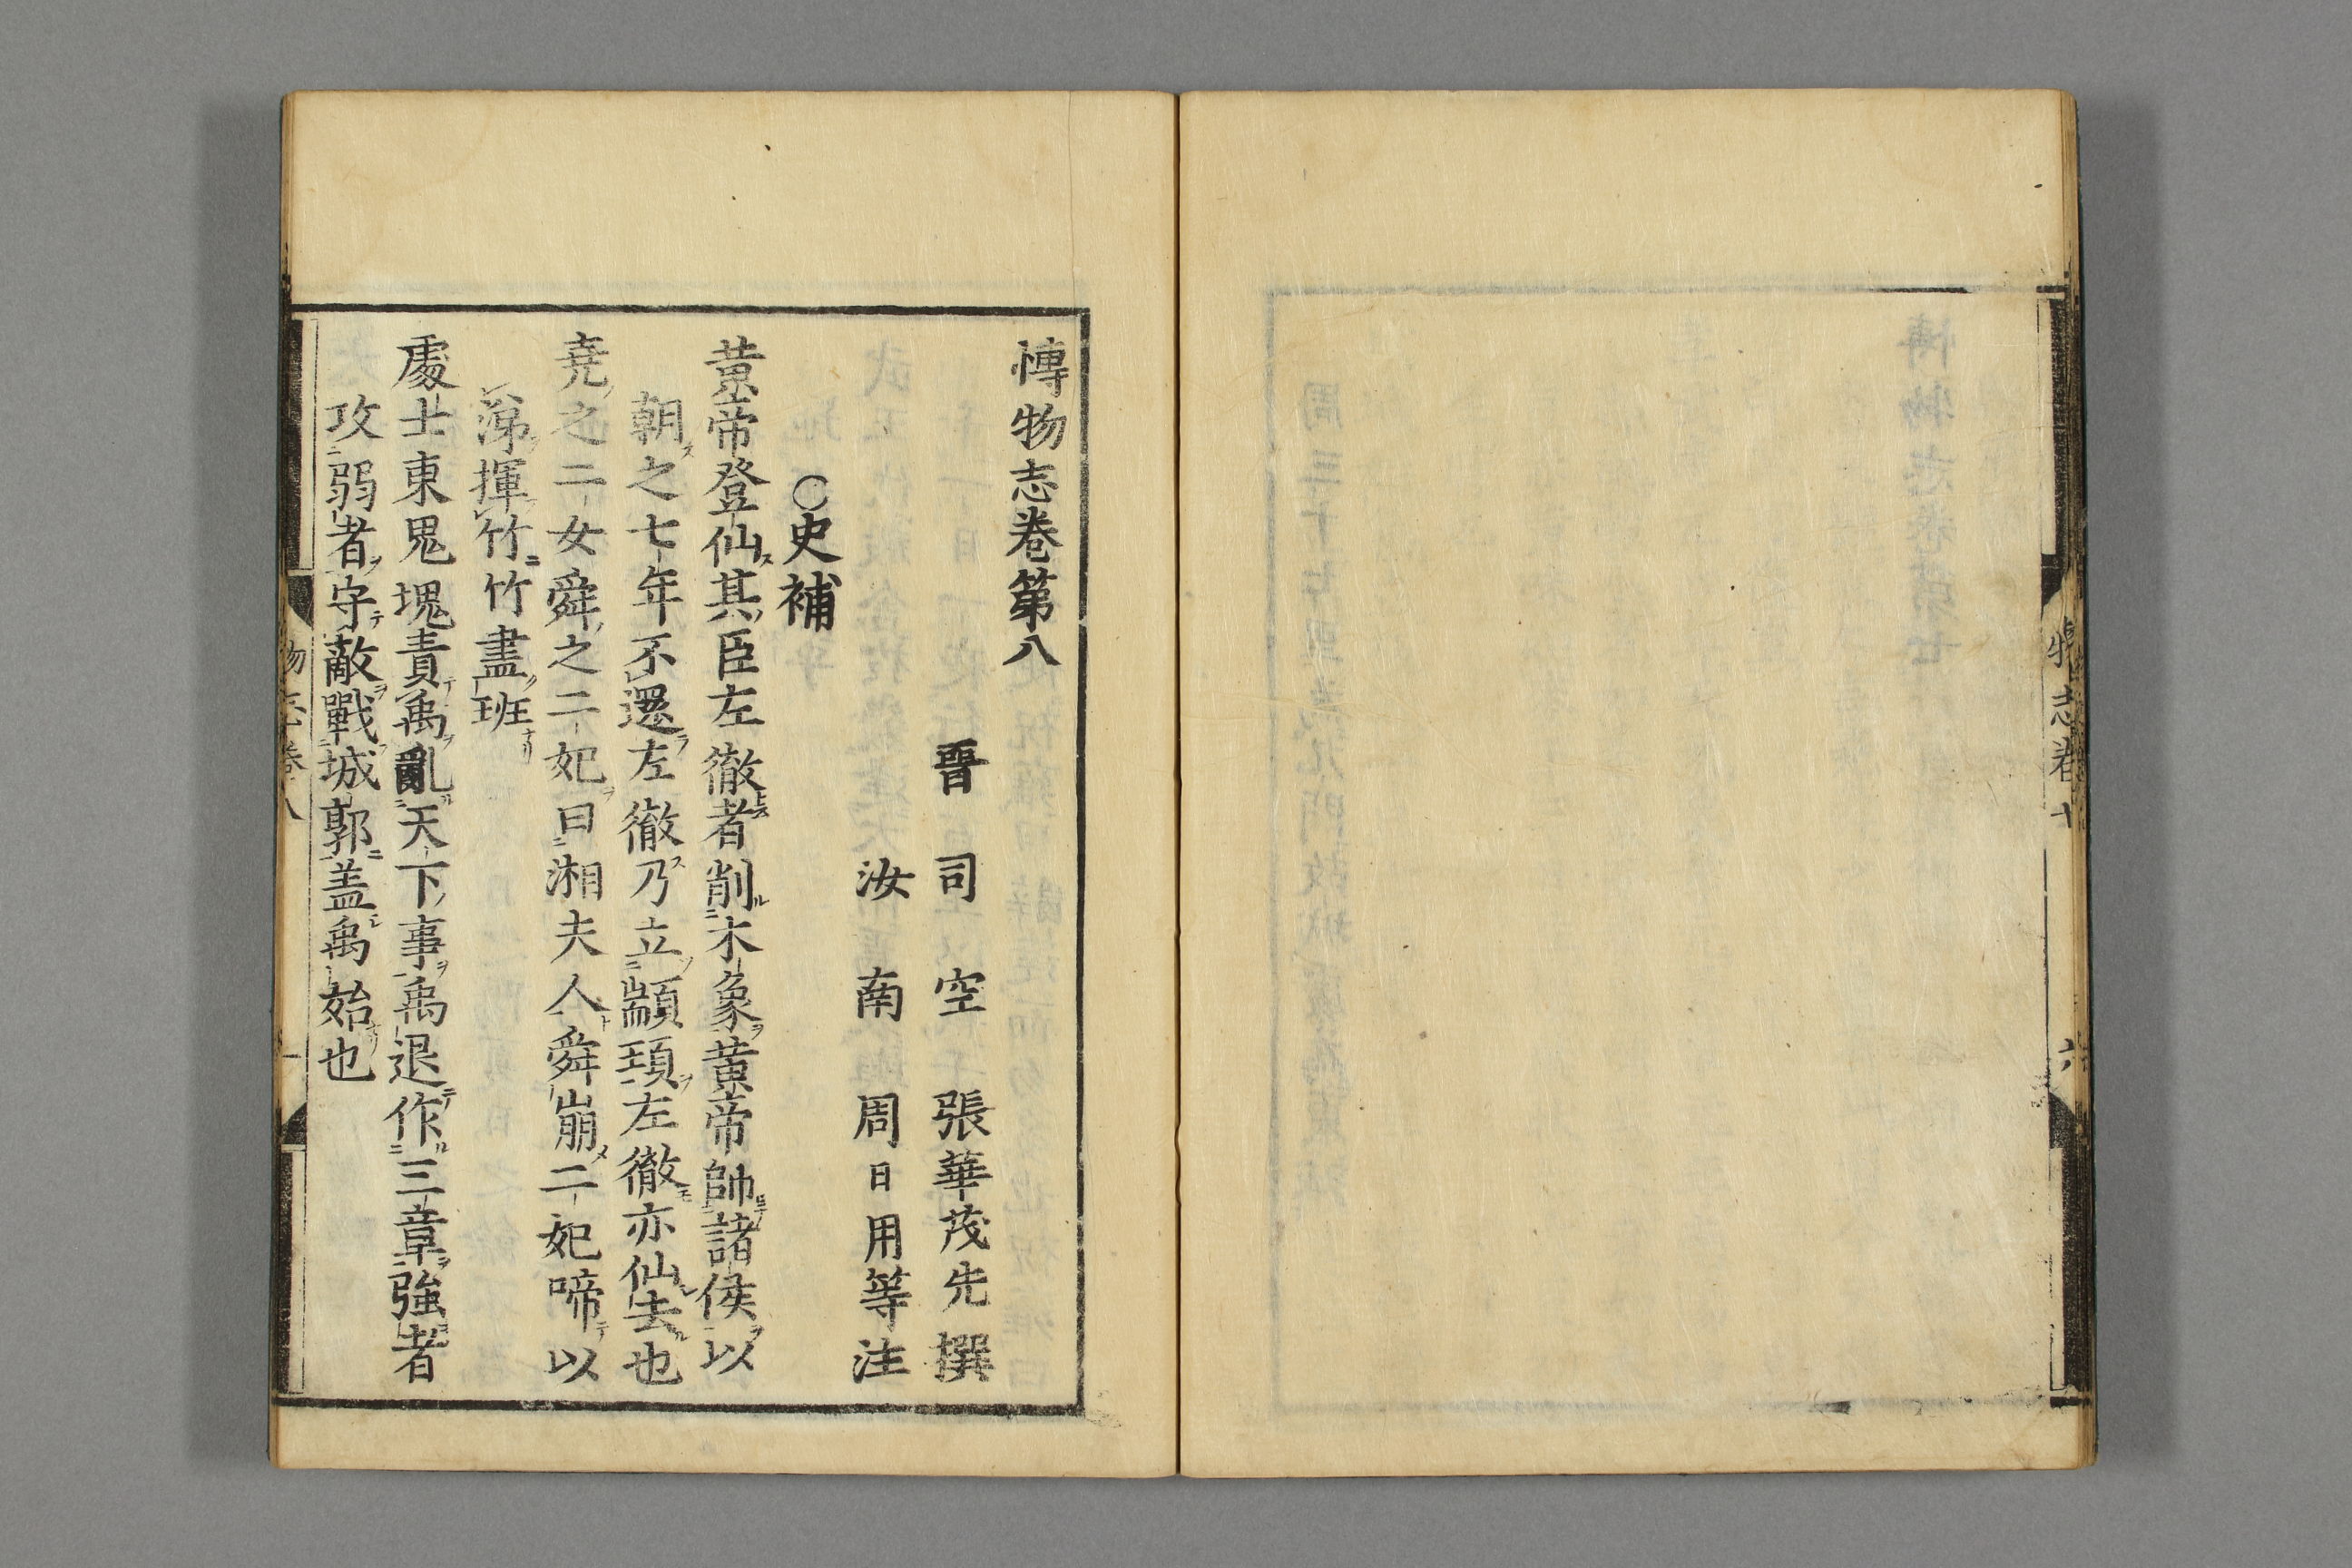 博物志卷第八
晉司空張華茂先撰
汝南周日用等注
○史補
黃帝登仙其臣左徹者削木象黃帝帥諸侯以
朝之七年不還左徹乃立顓頊左徹亦仙去也
堯之二女舜之二妃曰湘夫人舜崩二妃啼以
涕揮竹竹盡班
處士東鬼塊責禹亂天下事禹退作三章強者
攻弱者守敵戰城郭盖禹始也
物志卷八
一